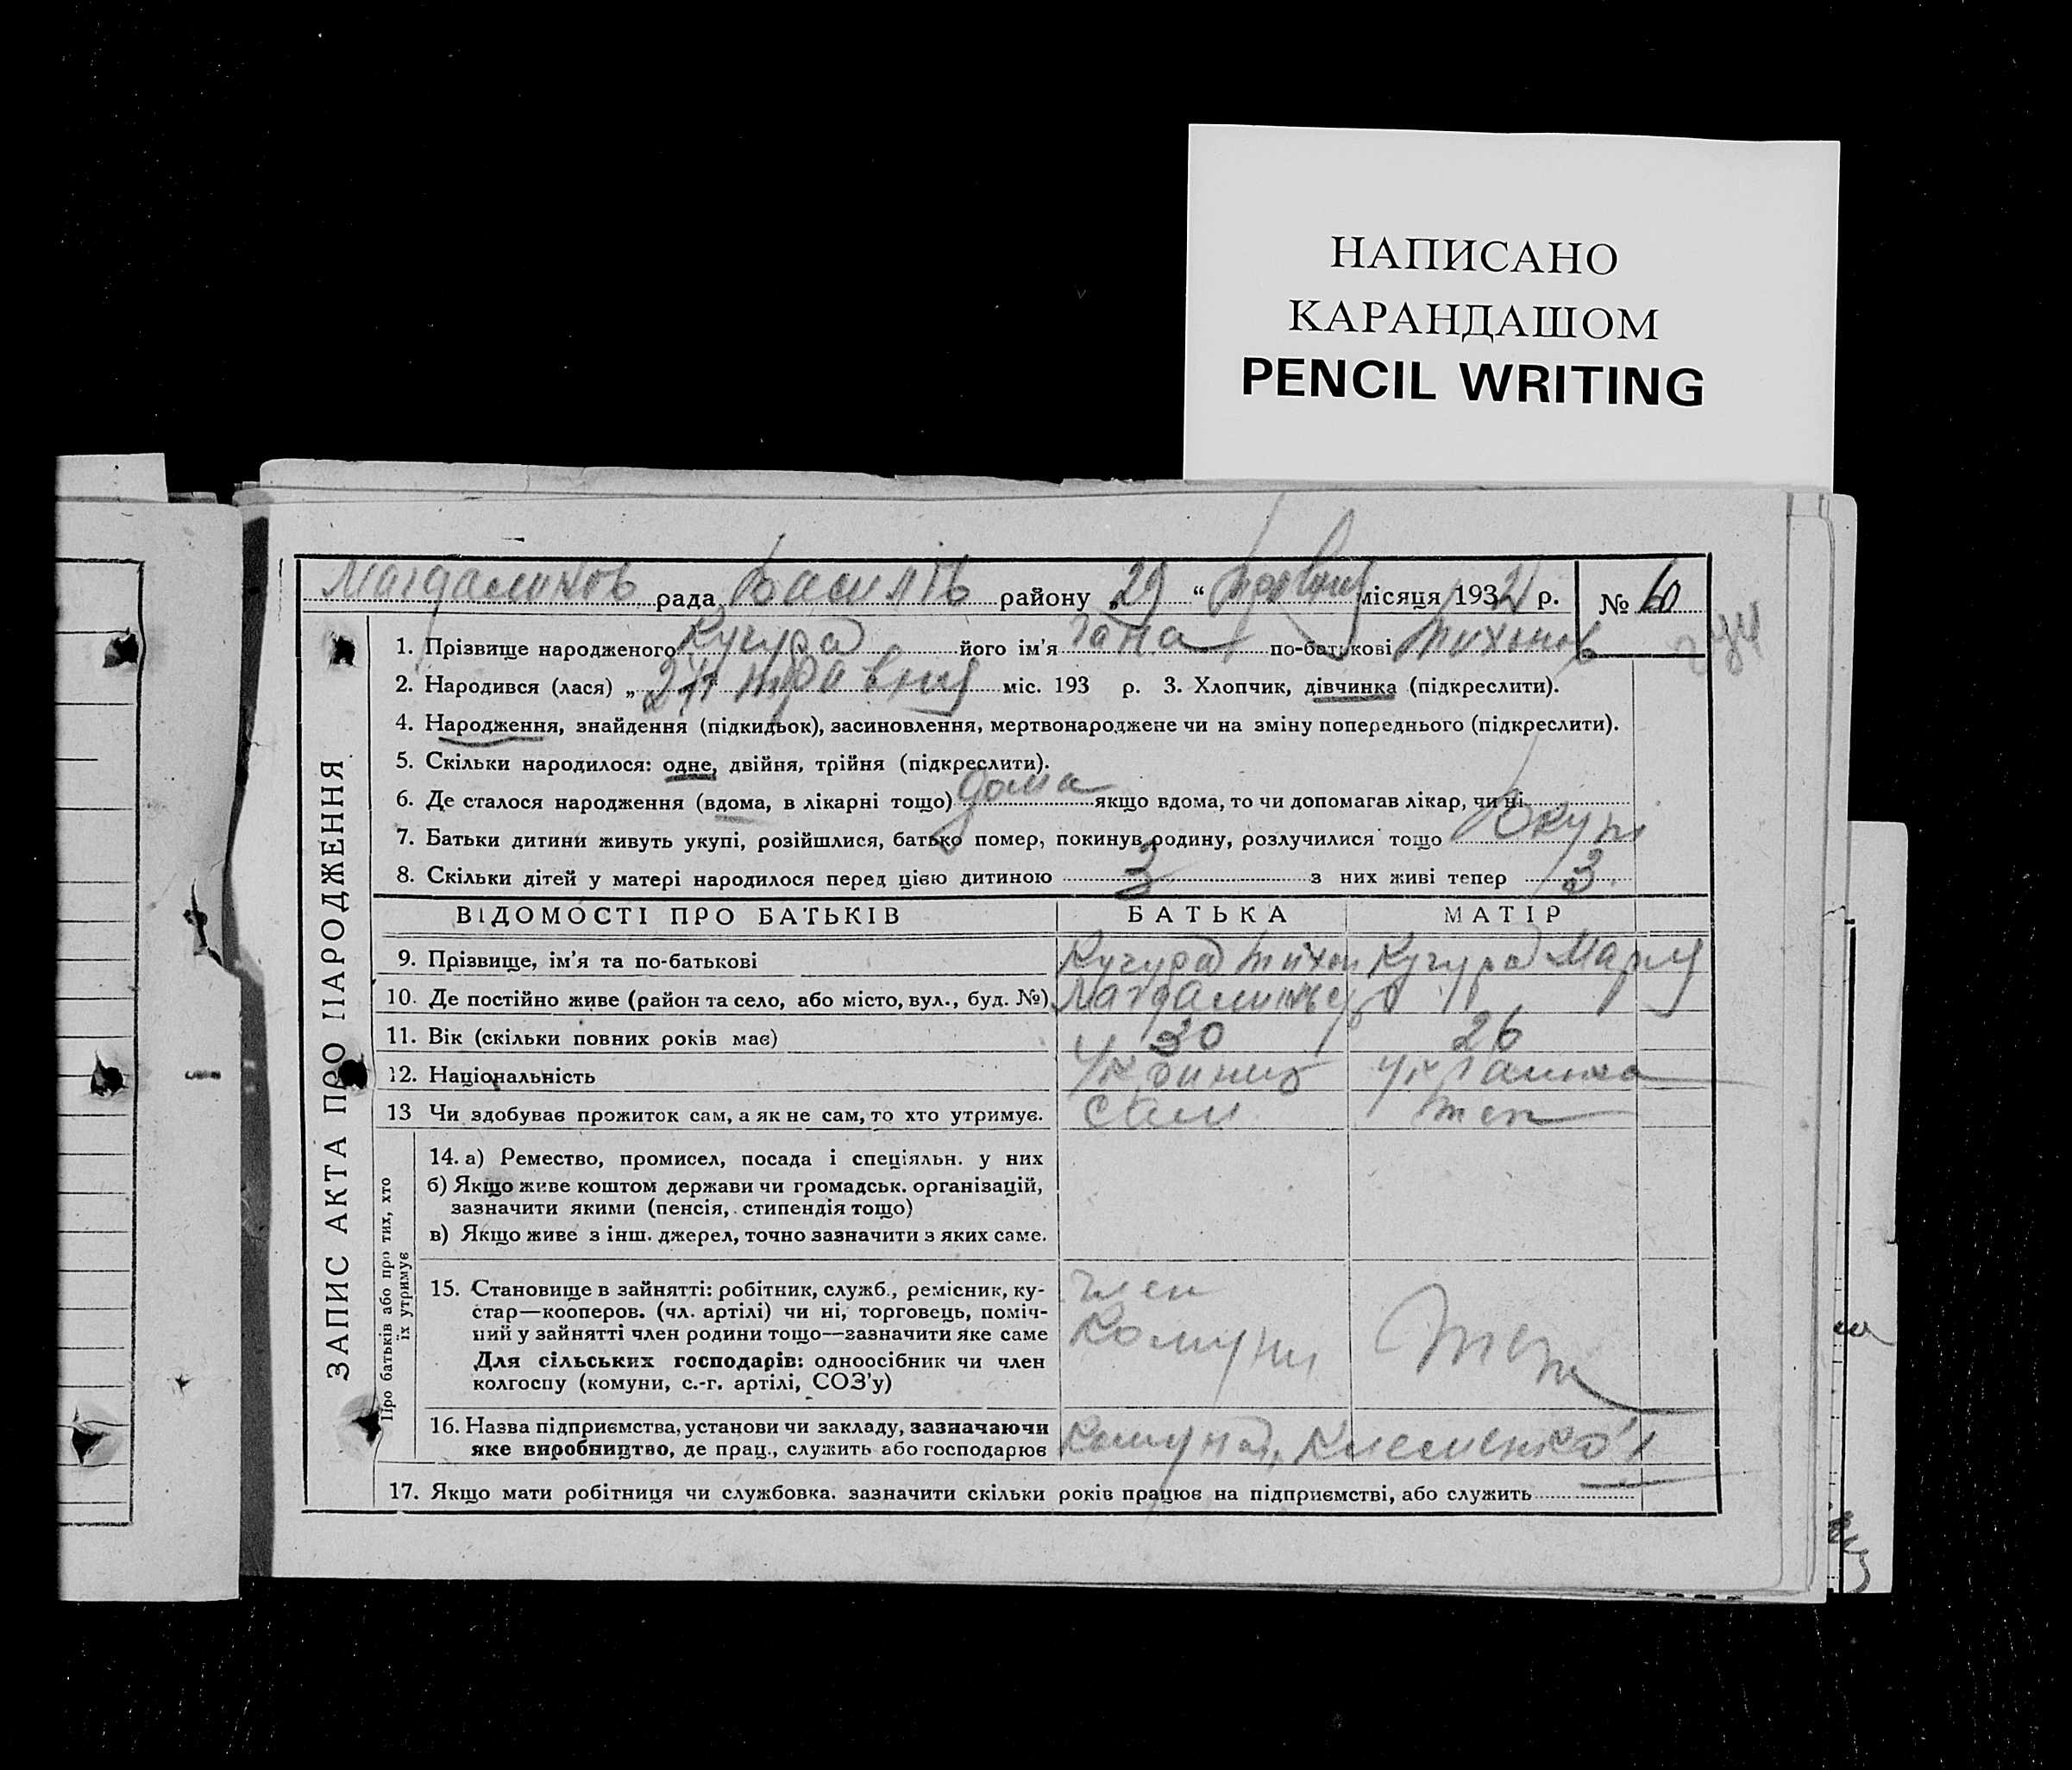 НАПИСАНО
КАРАНДАШОМ
PENCIL WRITING
Магдалинов рада Василів району „29“ травня місяця 1932 р. № 60
1. Прізвище народженого Кучура його ім'я Гана по-батькові Тихонов
2. Народився (лася) „24“ травня міс. 193 р. 3. Хлопчик, дівчинка (підкреслити).
4. Народження, знайдення (підкидьок), засиновлення, мертвонароджене чи на зміну попереднього (підкреслити).
5. Скільки народилося: одне, двійня, трійня (підкреслити).
6. Де сталося народження (вдома, в лікарні тощо) дома якщо вдома, то чи допомагав лікар, чи ні
7. Батьки дитини живуть укупі, розійшлися, батько помер, покинув родину, розлучилися тощо Вкупі
8. Скільки дітей у матері народилося перед цією дитиною 3 з них живі тепер 3.
ВІДОМОСТІ ПРО БАТЬКІВ БАТЬКА МАТІР
9. Прізвище, ім'я та по-батькові Кучура Тихон Кучура Мария
10. Де постійно живе (район та село, або місто, вул., буд. №)
11. Вік (скільки повних років має) 30 26
12. Національність Українец Українка
13 Чи здобуває прожиток сам, а як не сам, то хто утримує. сам теж
14. а) Ремество, промисел, посада і спеціяльн. у них
б) Якщо живе коштом держави чи громадськ. організацій,
зазначити якими (пенсія, стипендія тощо)
в) Якщо живе з інш. джерел, точно зазначити з яких саме.
15. Становище в зайнятті: робітник, служб., ремісник, ку-
стар—кооперов. (чл. артілі) чи ні, торговець, поміч-
ний у зайнятті член родини тощо—зазначити яке саме
Для сільських господарів: одноосібник чи член
колгоспу (комуни, с.-г. артілі, СОЗ'у)
член
Комуни теж
16. Назва підприємства, установи чи закладу, зазначаючи
яке виробництво, де прац., служить або господарює
Комуна,
17. Якщо мати робітниця чи службовка. зазначити скільки років працює на підприємстві, або служить
ЗАПИС АКТА ПРО НАРОДЖЕННЯ
Про батьків або про тих, хто
їх утримує